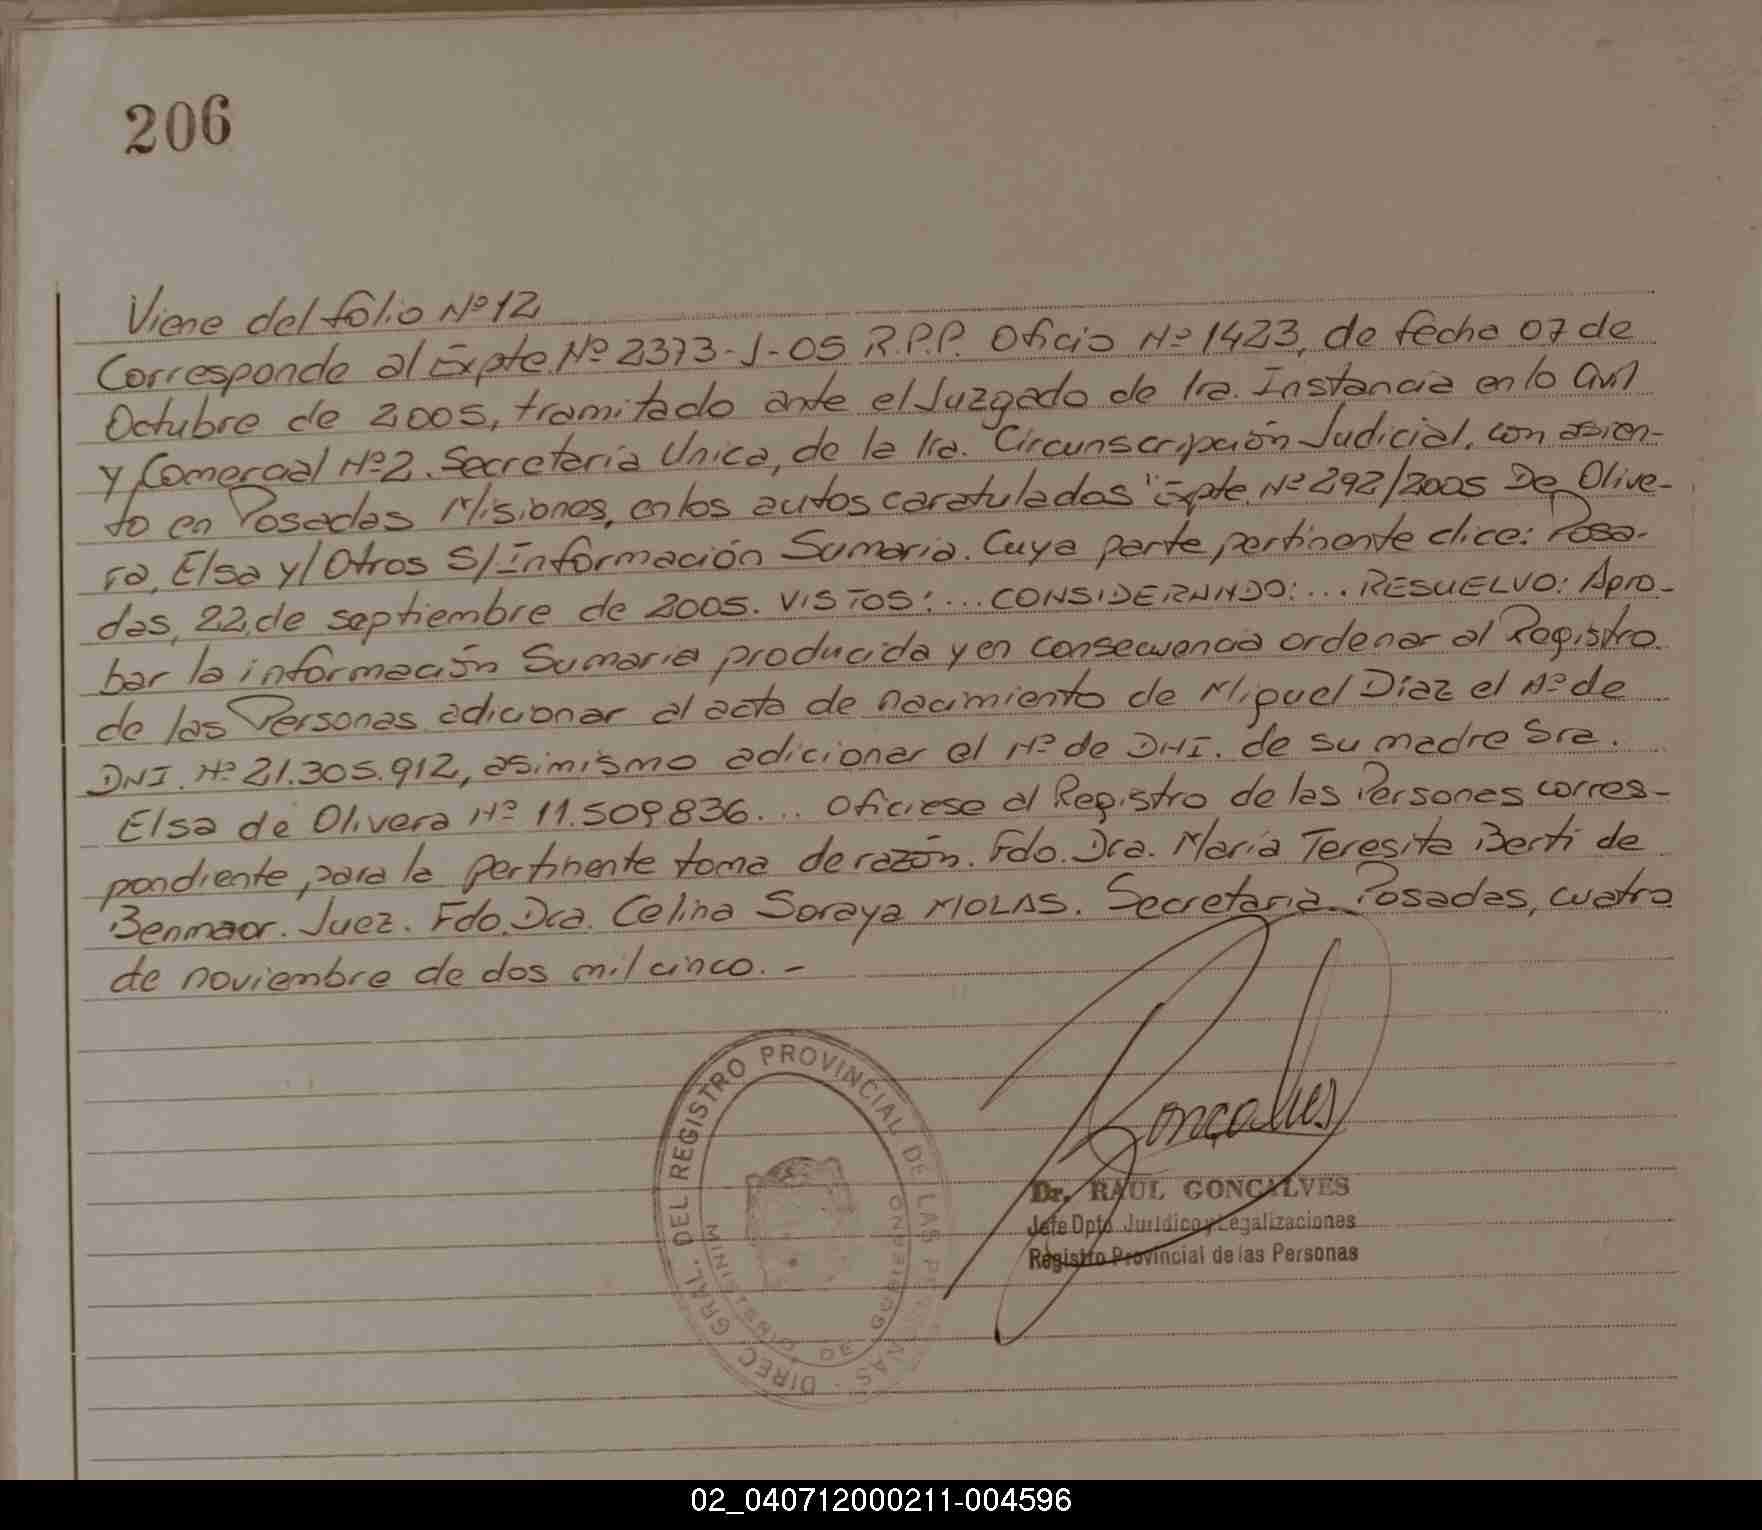 206
Viene del folio Nº 12
Corresponde al Expte. Nº 2373-J-05 R.P.P. Oficio Nº 1423, de fecha 07 de
Octubre de 2005, tramitado ante el Juzgado de 1ra. Instancia en lo Civil
y Comercial Nº 2. Secretaría Unica, de la 1ra. Circunscripción Judicial, con asien-
to en Posadas Misiones, en los autos caratulados "Expte. Nº 292/2005 De Olive-
ra, Elsa y/Otros S/Información Sumaria. Cuya parte pertinente dice: Posa-
das, 22 de septiembre de 2005. VISTOS:... CONSIDERANDO:... RESUELVO: Apro-
bar la información Sumaria producida y en consecuencia ordenar al Registro
de las Personas adicionar al acta de nacimiento de Miguel Díaz el Nº de
DNI. Nº 21.305.912, asimismo adicionar el Nº de DNI. de su madre Sra.
Elsa de Olivera Nº 11.509836... Ofíciese al Registro de las Personas corres-
pondiente, para la pertinente toma de razón. Fdo. Dra. María Teresita Berti de
Benmaor. Juez. Fdo. Dra. Celina Soraya MOLAS. Secretaria. Posadas, cuatro
de noviembre de dos mil cinco.-
DIREC. GRAL. DEL REGISTRO PROVINCIAL DE LAS PERSONAS
MINISTERIO DE GOBIERNO
Goncalves
Dr. RAUL GONCALVES
Jefe Dpto. Jurídico y Legalizaciones
Registro Provincial de las Personas
02_040712000211-004596